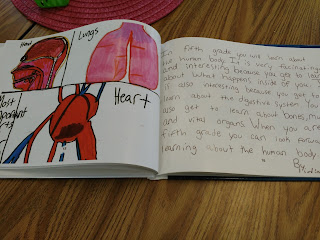 Head
Lungs
Most
Important
Parts
Heart
In fifth grade you will learn about
the human body. It is very fascinating
and interesting because you get to learn
about what happens inside of you. It
is also interesting because you get to
learn about the digestive system. You
also get to learn about bones, mus
and vital organs. When you are
fifth grade you can look forward
learning about the human body
By: